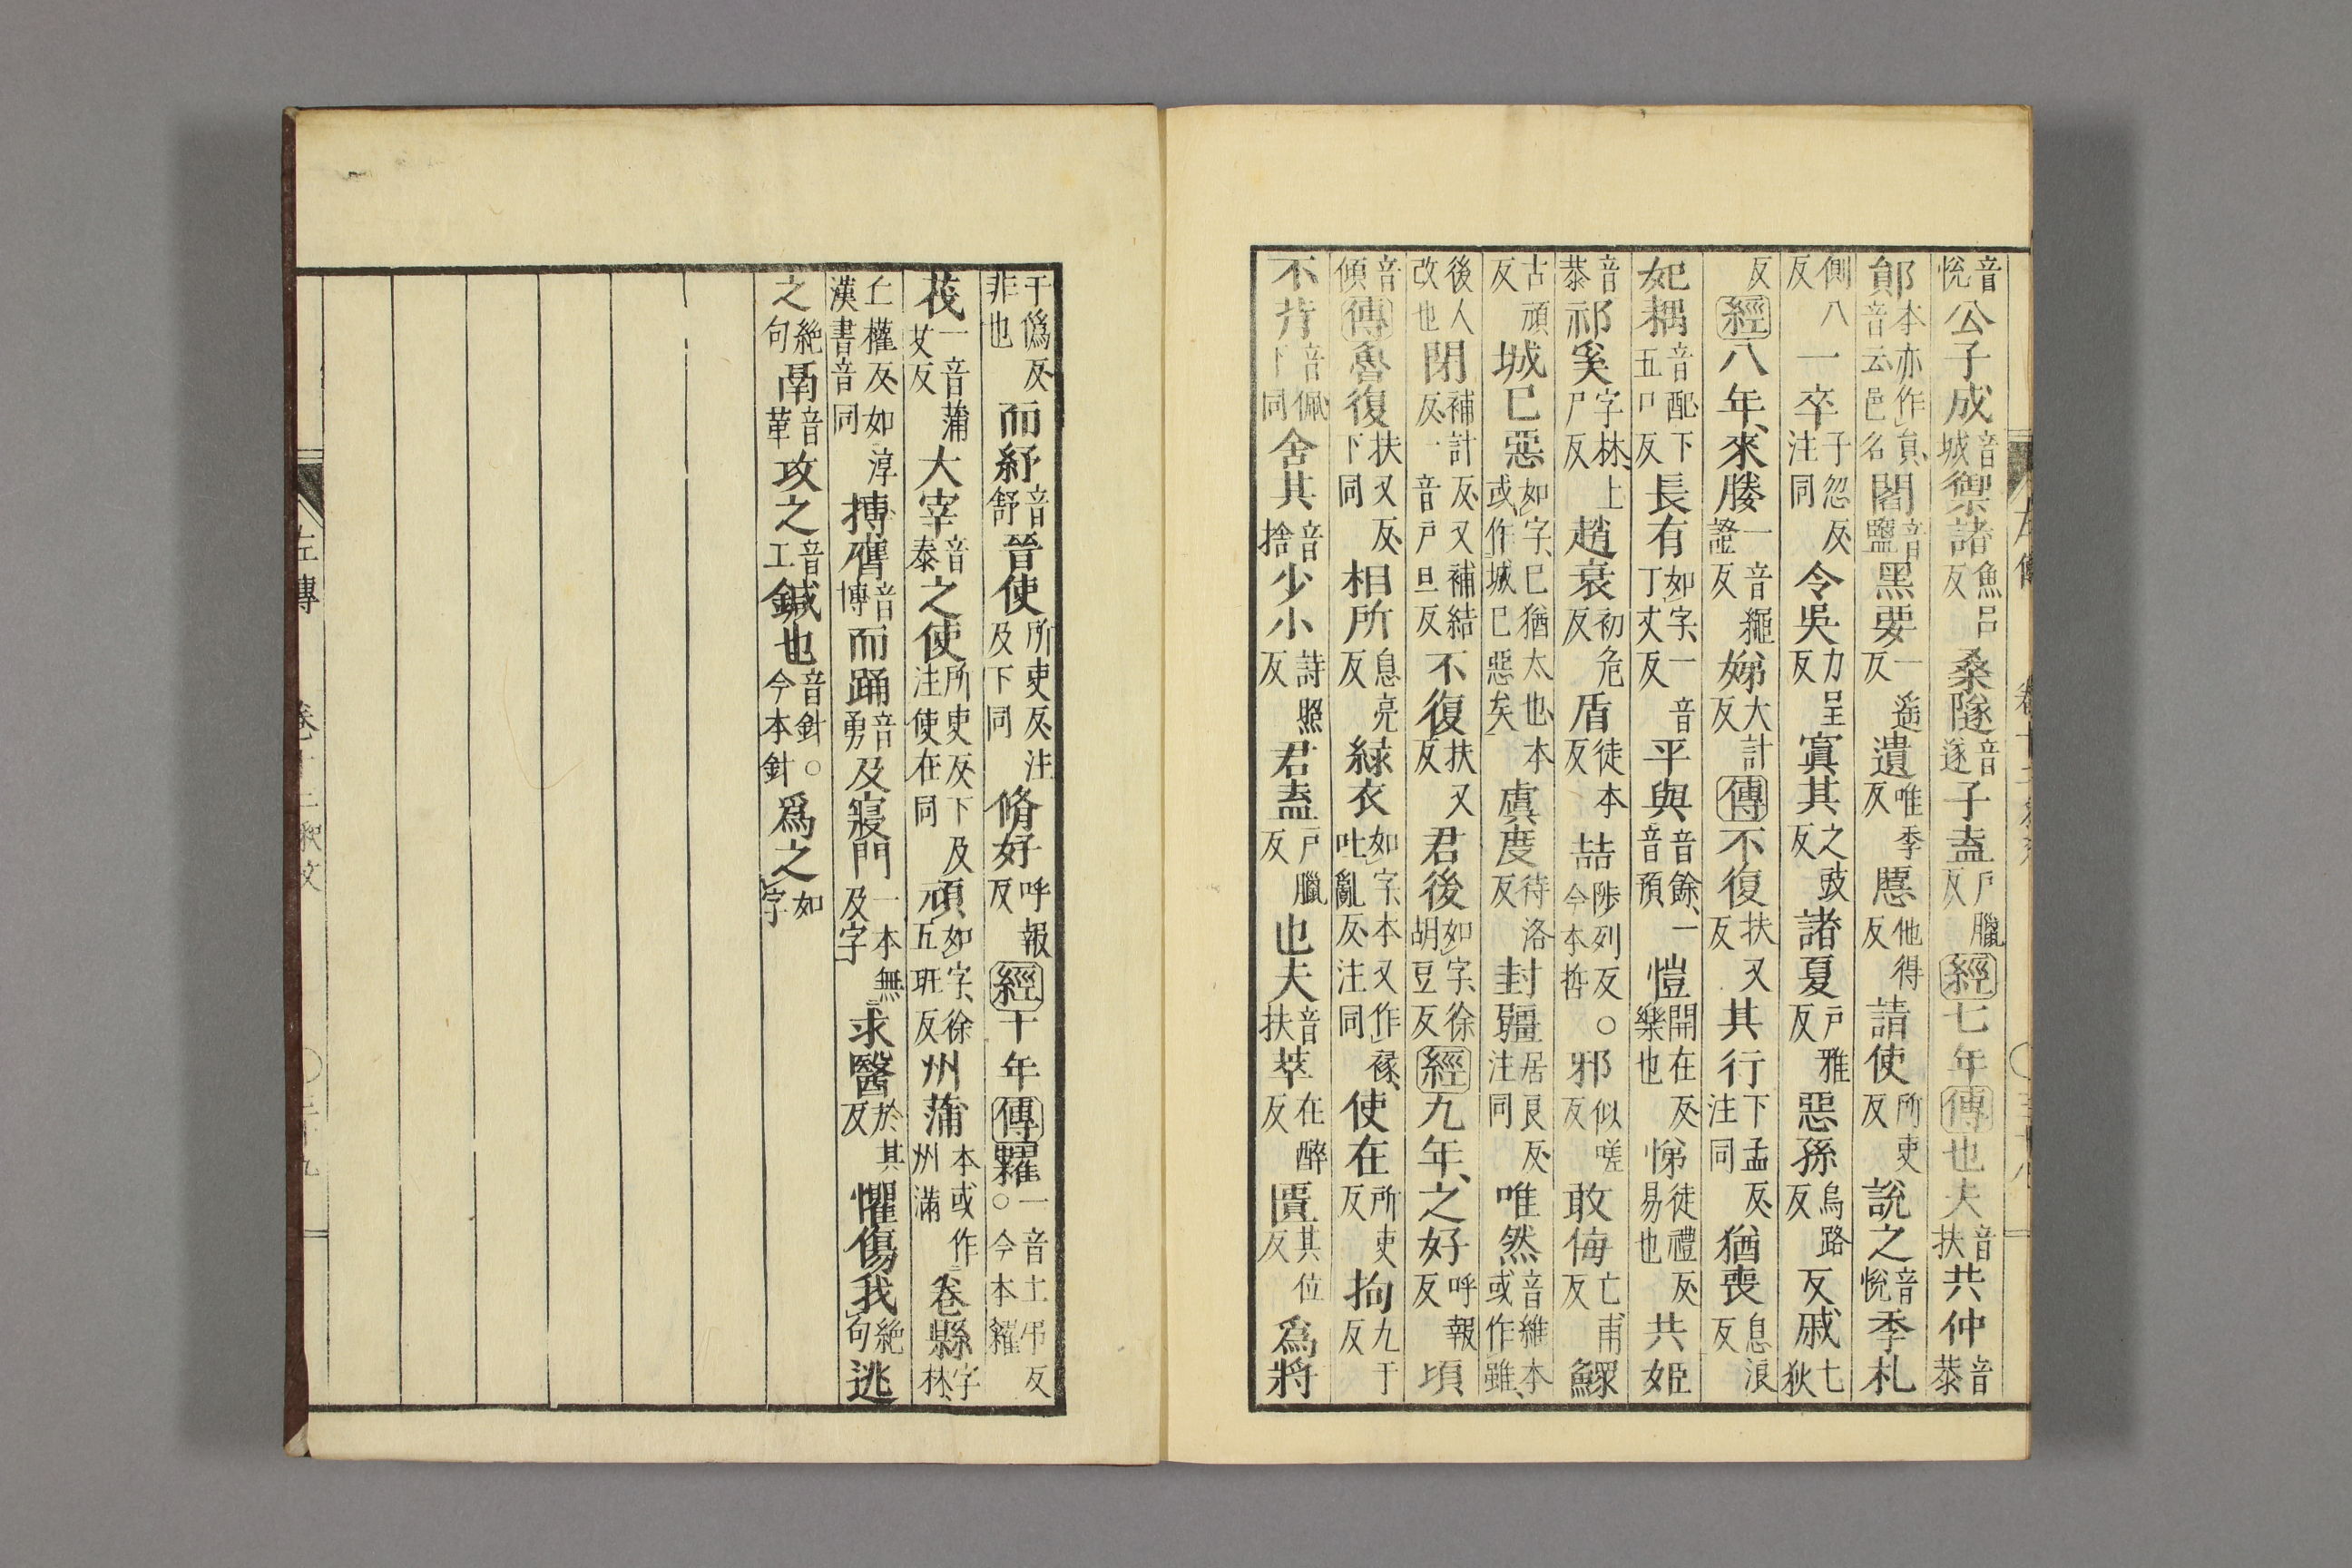 音悅公子成音城禦諸魚呂反桑隧音遂子盍戶臘反經七年傳也夫音扶共仲音恭
鄖本亦作員音云邑名閻音鹽黑要一遙反遺唯季反慝他得反請使所吏反說之音悅季札
側八反一卒子忽反注同令吳力呈反寘其之豉反諸夏戶雅反惡孫烏路反反戚七狄
反經八年、來媵一音繩證反娣大計反傳不復扶又反其行下孟反注同猶喪息浪反
妃耦音配下五口反長有如字、一音丁丈反平與音餘、一音預愷開在反樂也悌徒禮反易也共姬
音恭祁奚字林、上尸反趙衰初危反盾徒本反喆陟列反○今本哲邪似嗟反敢侮亡甫反鰥
古頑反城已惡如字、已猶太也、本或作城已惡矣虞度待洛反封疆居良反注同唯然音維本或作雖、
後人改也閉補計反又補結反一音戶旦反不復扶又反君後如字、徐胡豆反經九年、之好呼報反頃
音傾傳魯復扶又反下同相所息亮反綠衣如字、本又作褖、吐亂反注同使在所吏反拘九于反
不背音佩下同舍其音捨少小詩照反君盍戶臘反也夫音扶萃在醉反匱其位反爲將
左傳 卷十三釋文 ○三十九
于僞反非也而紓音舒晉使所吏反注及下同脩好呼報反經十年傳糴一音土弔反○今本糴
茷一音蒲艾反大宰音泰之使所吏反下及注使在同頑如字、徐五班反州蒲本或作州滿卷縣字林、
丘權反如淳漢書音同搏膺音博而踊音勇及寢門一本無及字求醫於其反懼傷我絕句逃
之絕句鬲音革攻之音工鍼也音針○今本針爲之如字